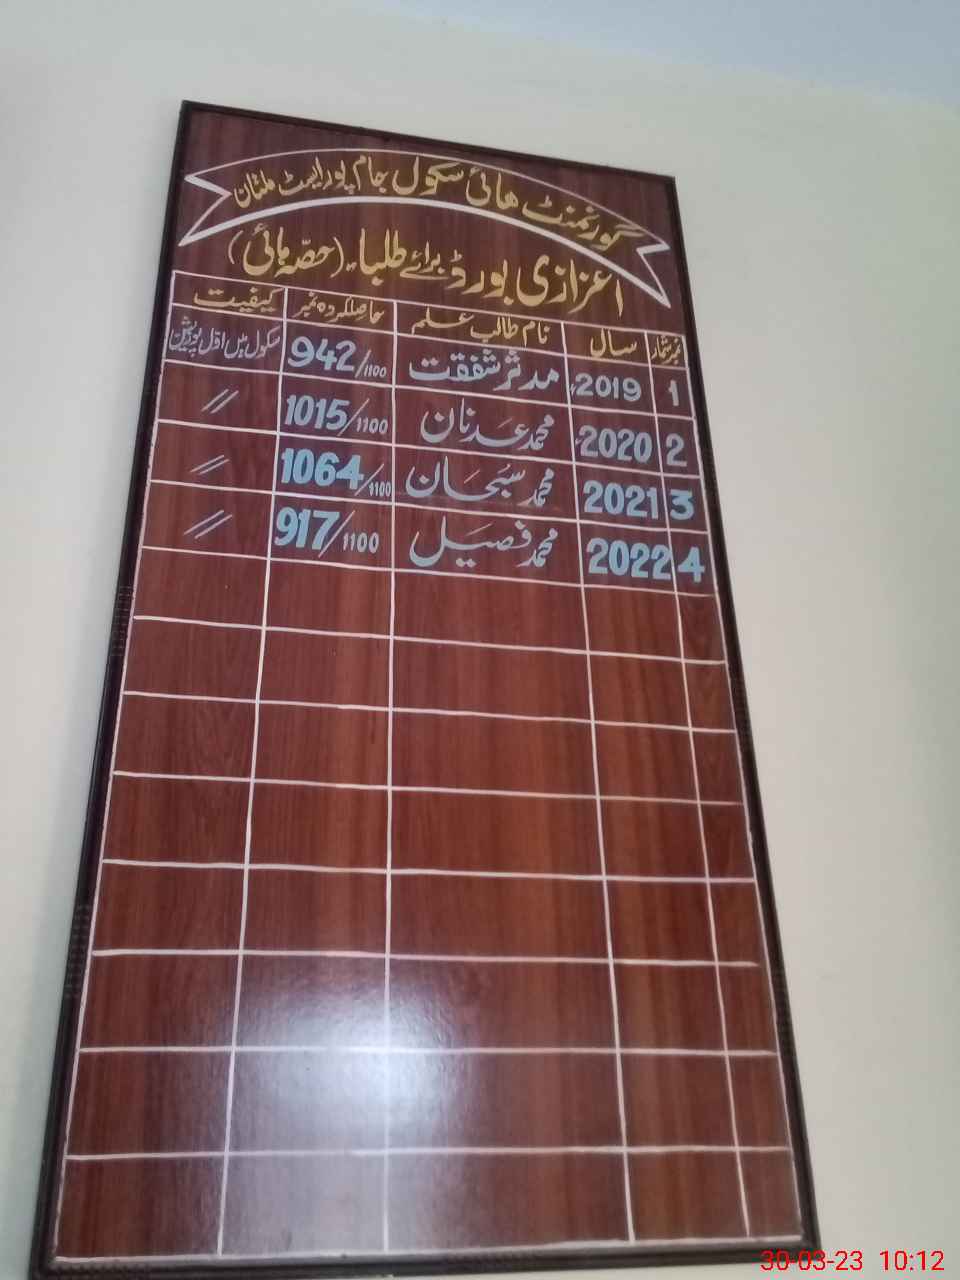 گورنمنٹ ہائی سکول جام پور ایسٹ ملتان
اعزازی بورڈ برائے طلباء (حصّہ ہائی)
نمبر شمار سال نام طالب علم حاصلکردہ نمبر کیفیت
1 2019ء مدثر شفقت 942/1100 سکول میں اوّل پوزیشن
2 2020ء محمد عدنان 1015/1100 //
3 2021 محمد سبحان 1064/1100 //
4 2022 محمد فصیل 917/1100 //
30-03-23 10:12